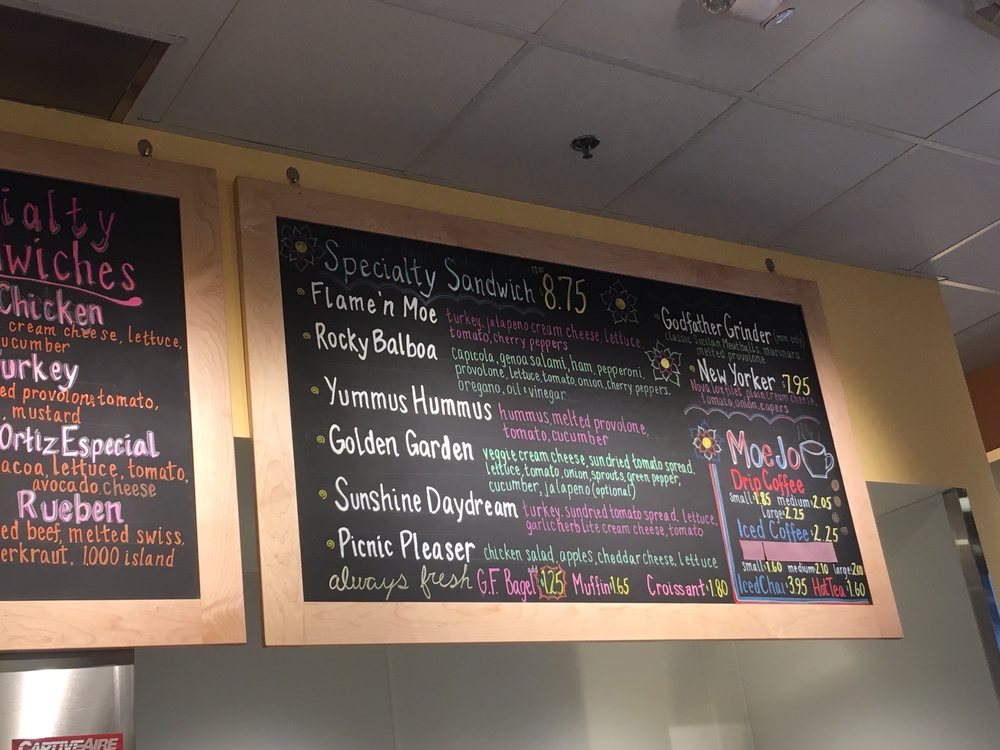 ialty
wiches
Chicken
cream cheese, lettuce,
ucumber
urkey
ed provolone, tomato,
, mustard
Ortiz Especial
acoa, lettuce, tomato,
avocado, cheese
Rueben
ed beef, melted swiss,
erkraut, 1,000 island
CAPTIVEAIRE
Specialty Sandwich 8.75
Flame 'n Moe turkey, jalapeno cream cheese, lettuce,
tomato, cherry peppers
Rocky Balboa capicola, genoa salami, ham, pepperoni,
provolone, lettuce, tomato, onion, cherry peppers,
oregano, oil & vinegar
Yummus Hummus hummus, melted provolone,
tomato, cucumber
Golden Garden veggie cream cheese, sundried tomato spread,
lettuce, tomato, onion, sprouts, green pepper,
cucumber, jalapeno (optional)
Sunshine Daydream turkey, sundried tomato spread, lettuce,
garlic herb lite cream cheese, tomato
Picnic Pleaser chicken salad, apples, cheddar cheese, lettuce
always fresh G.F. Bagel 1.25 Muffin 1.65 Croissant 1.80
Godfather Grinder
classic Sicilian Meatballs, marinara,
melted provolone
New Yorker 7.95
Nova lox filet, plain cream cheese,
tomato, onion, capers
Moe Jo
Drip Coffee
small 1.85 medium 2.05
large 2.25
Iced Coffee 2.25
small 1.60 medium 2.10 large
Iced Chai 3.95 Hot Tea 1.60